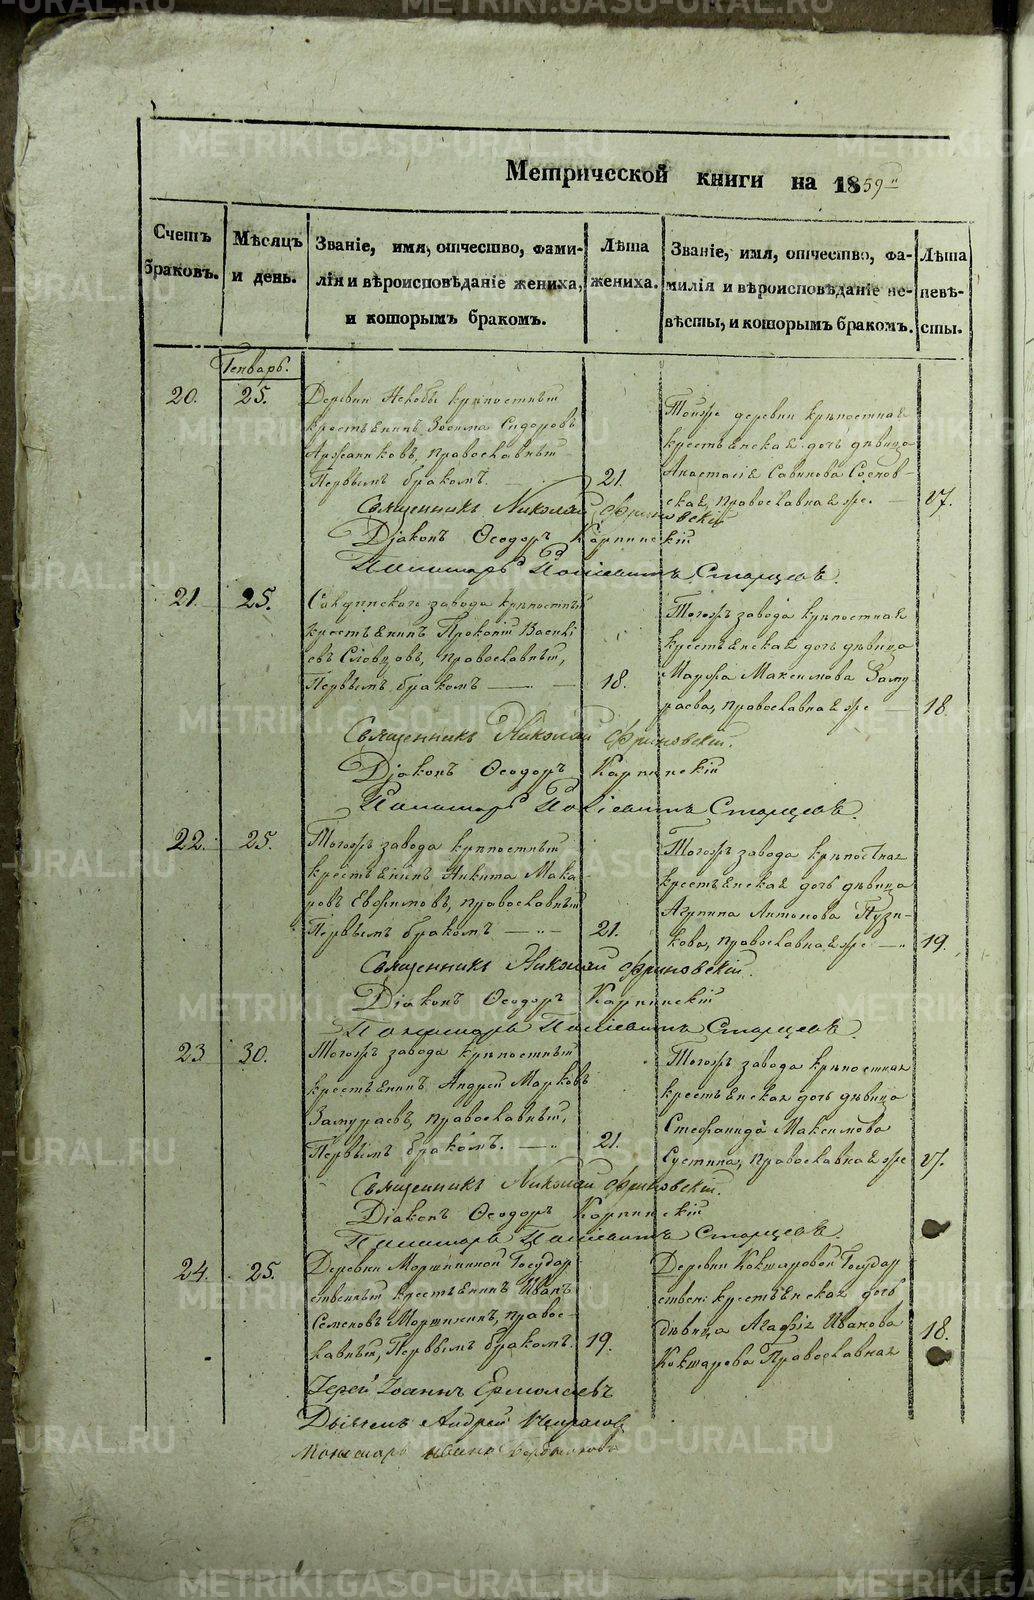 Метрической книги на 1859
Счетъ браковъ.
Мѣсяцъ и день.
Званіе, имя, отчество, фами-
лія и вѣроисповѣданіе жениха,
и которымъ бракомъ.
Лѣта
жениха.
Званіе, имя, отчество, фа-
милія и вѣроисповѣданіе не-
вѣсты, и которымъ бракомъ.
Лѣта
невѣ-
сты.
Генварь.
20. 25.
Деревни крѣпостный
крестьянинъ Зосима Сидоровъ
православный
Первымъ бракомъ. 21.
Тойже деревни крѣпостная
крестьянская дочь дѣвица
Анастасія Савинова Соснов-
ская, православная же. 17.
Священникъ Николай Фриновскій
Діаконъ Ѳеодоръ Карпинскій
Пономарь Старцевъ.
21. 25.
завода крѣпостный
крестьянинъ Прокопій Василь
евъ Словцовъ, православный,
Первымъ бракомъ 18.
Тогожъ завода крѣпостная
крестьянская дочь дѣвица
Марѳа Максимова Заму
раева, православная же 18.
Священникъ Николай Фриновскій.
Діаконъ Ѳеодоръ Карпинскій
Пономарь Старцевъ.
22. 25.
Тогожъ завода крѣпостный
крестьянинъ Никита Мака
ровъ Евфимовъ, православный
Первымъ бракомъ 21.
Тогожъ завода крѣпостная
крестьянская дочь дѣвица
Агрипина Антонова Пузи-
кова, православная же 19.
Священникъ Николай Фриновскій.
Діаконъ Ѳеодоръ Карпинскій
Пономарь Старцевъ.
23 30.
Тогожъ завода крѣпостный
крестьянинъ Андрей Марковъ
Замураевъ, православный,
Первымъ бракомъ. 21.
Тогожъ завода крѣпостная
крестьянская дочь дѣвица
Стефанида Максимова
Сустина, православная же 17.
Священникъ Николай Фриновскій.
Діаконъ Ѳеодоръ Карпинскій
Пономарь Старцевъ.
24. 25.
Деревни Моршининой Государ
ственный крестьянинъ Иванъ
Семеновъ Моршининъ, правос-
лавный, Первымъ бракомъ. 19.
Деревни Кокшаровой Государ
ствен: крестьянская дочь
дѣвица Агафія Иванова
Кокшарова Православная 18.
Іерей Іоаннъ Ермолаевъ
Дьячекъ Андрей
Пономарь
METRIKI.GASO-URAL.RU